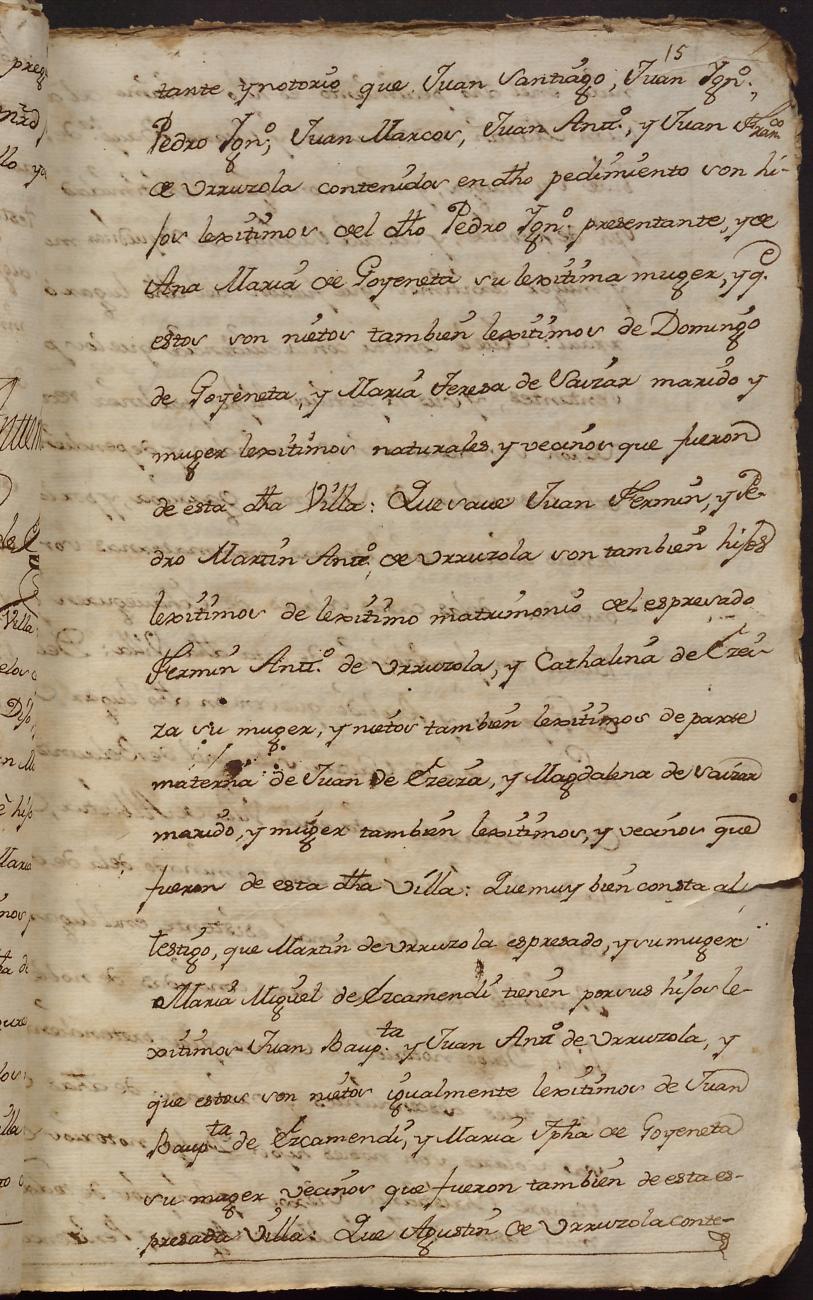 15
tante y notorio que Juan Santiago, Juan Ygnº.,
Pedro Ygnº, Juan Marcos, Juan Anttº., y Juan Franco
de Vrruzola contenidos en dho pedimiento son hi-
jos lexitimos del dho Pedro Ygnº. presentante, y de
Ana Maria de Goyeneta su lexitima muger, y q.e
estos son nietos tambien lexitimos de Domingo
de Goyeneta, y Maria Teresa de Saizar marido y
muger lexitimos naturales y vecinos que fueron
de esta dha Villa: Que save Juan Fermin, y Pe-
dro Martin Anttº. de Vrruzola son tambien hijos
lexitimos de lexitimo matrimonio del espresado
Fermin Anttº. de Vrruzola, y Cathalina de Ezei-
za su muger, y nietos tambien lexitimos de parte
materna de Juan de Ezeiza, y Magdalena de Saizar
marido, y muger tambien lexitimos, y vecinos que
fueron de esta dha Villa: Que muy bien consta al
testigo, que Martin de Vrruzola espresado, y su muger
Maria Miguel de Ezcamendi tienen por sus hijos le-
xitimos Juan Baup.ta y Juan Anttº de Vrruzola, y
que estos son nietos igualmente lexitimos de Juan
Baupta de Ezcamendi, y Maria Jpha de Goyeneta
su muger vecinos que fueron tambien de esta es-
presada Villa: Que Agustin de Vrruzola conte-